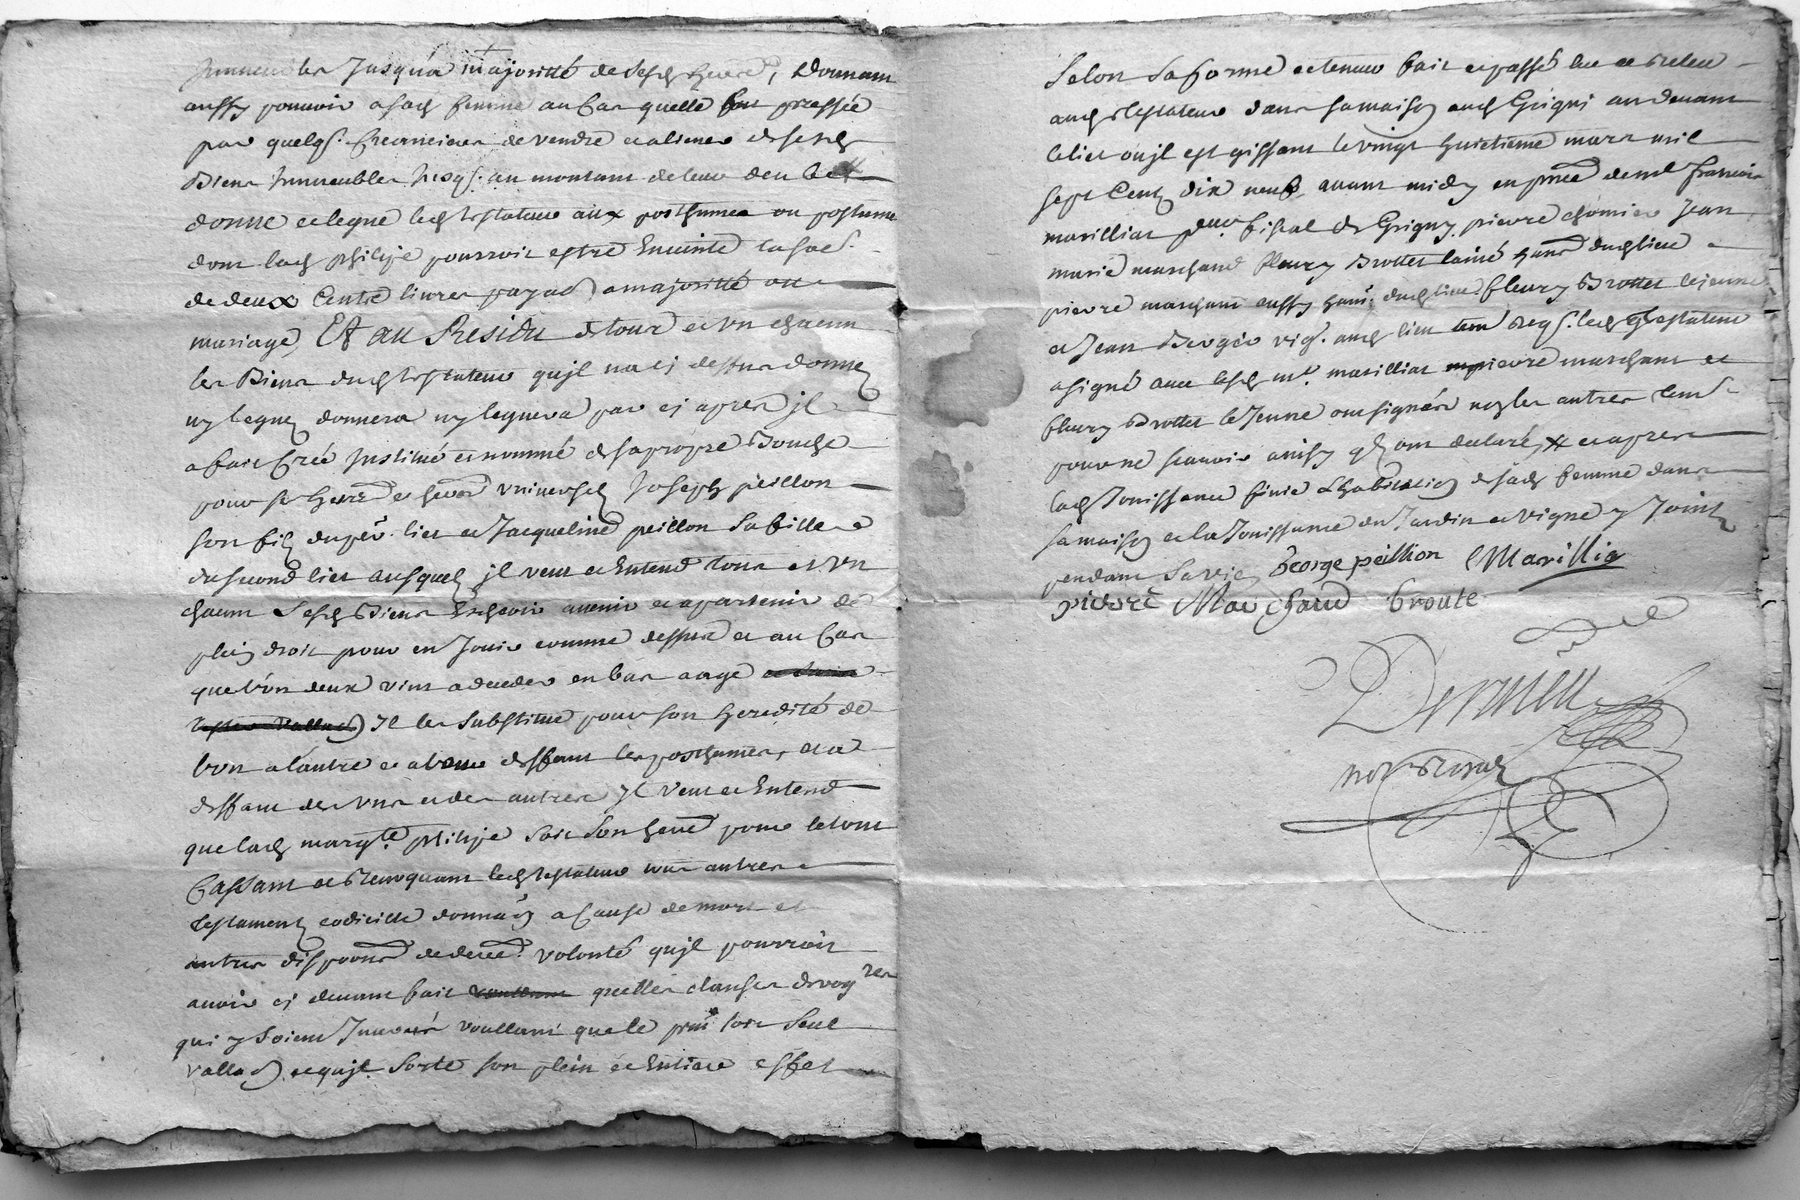 Jusqu'a majoritté de sesd heers, Donnant
aussy pouvoir a sad femme au Cas quelle fut pressée
par quelqs. Creanciers de vendre et aliener de sesd
Biens Immeubles jusqs. au montant de leur deu
donne et legue led testateur aux posthumes ou postume
dont lad philipe pourroit estre Enceinte la soe.
de deux Cents livres payab a majoritté ou
mariage, Et au Residu de tous et un chacun
les Biens dud testateur qujl na cj dessus donnez
ny leguez donnera ny leguera par cj apres jl
a fait Créé Institué et nommé de sa propre Bouche
pour ses heers et universels Joseph peillon
son filz du per. lict et Jacqueline peillon sa fille
du second lict ausquels jl veut et Entend tous et un
chacun sesd Biens Escheoir avenir et apartenir de
plein droit pour en Jouir comme dessus et au Cas
que l'un deux vint a deceder en bas aage
Il les substitue pour son heredité de
l'un a lautre et a leur deffaut les posthumes, et a
deffaut des uns et des autres Il veut et Entend
que lad margte. philipe soit son heere pour le tout
Cassant et Revoquant led testateur tous autres
testament codicille donnaon a Cause de mort et
autres dispoons de dere. volonté qujl pourroit
avoir cj devant fait quelles clauses derogres
qui y soient Inserés voullant que le pnt soit seul
vallab et qujl sorte son plein et Entiere effet
Selon sa forme et teneur fait et passé lu et Releu
aud testateur dans sa maison aud Grigni au devant
le lict ou jl est gissant le vingt huictieme mars mil
sept Cents dix neuf avant midy en pnce de me francois
marilliat pcur fiscal de Grigny, pierre chomier Jean
marie marchand fleury Brottet lainé hants dud lieu
pierre marchant aussy hant. dud lieu fleury Brottet le jeune
et Jean Bergéo vigr. aud lieu tem Reqs. led testateur
a signé avec lesd me. marilliat pierre marchant et
fleury Brottet le Jeune ont signés non les autres tem
pour ne scavoir ainsy qls ont declaré, et apres
lad Jouissance finie L'habitation de sad femme dans
sa maison et la Jouissance du Jardin et vigne y Joints
pendant sa vie, george peillion Marillia
pierre Marchand broute
not Royal